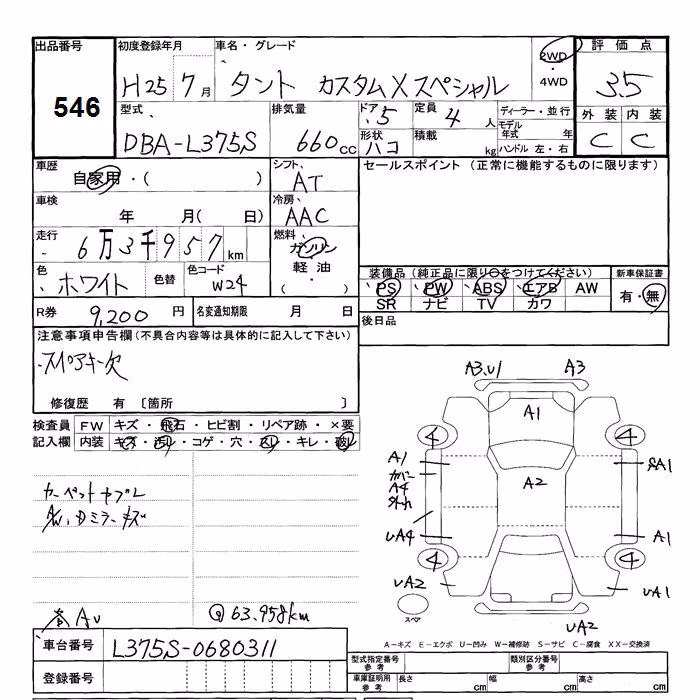 出品番号 初度登録年月 車名・グレード 評価点
546 H25年7月 タント カスタムXスペシャル 2WD ・4WD 3.5
型式 排気量 ドア 定員 ディーラー・並行 外装 内装
DBA-L375S 660cc 5 4人 モデル年式 年 C C
形状 ハコ 積載 kg ハンドル 左・右
車歴 自家用・( ) シフト AT セールスポイント(正常に機能するものに限ります)
車検 年 月( 日) 冷房 AAC
走行 6万3千957km 燃料 ガソリン 軽油・( )
色 ホワイト 色替 色コード W24 装備品(純正品に限り○をつけてください) 新車保証書
PS PW ABS エアB AW 有・無
SR ナビ TV カワ
R券 9,200円 名変通知期限 月 日 後日品
注意事項申告欄(不具合内容等は具体的に記入して下さい)
スペアキー欠
修復歴 有 〔箇所 〕
検査員 FW キズ・飛石・ヒビ割・リペア跡・×要
記入欄 内装 キズ・汚レ・コゲ・穴・スレ・キレ・破レ
A3.U1 A3
A1
4 4
A1 カバー A4 A2 SA1
UA4 A1
4 4
UA2 UA1
スペア UA2
カーペットヤブレ
ミラーキズ
63.958km
A-キズ E-エクボ U-凹み W-補修跡 S-サビ C-腐食 XX-交換済
車台番号 L375S-0680311
登録番号
型式指定番号 参考 類別区分番号 参考
車庫証明用 参考 長さ cm 幅 cm 高さ cm